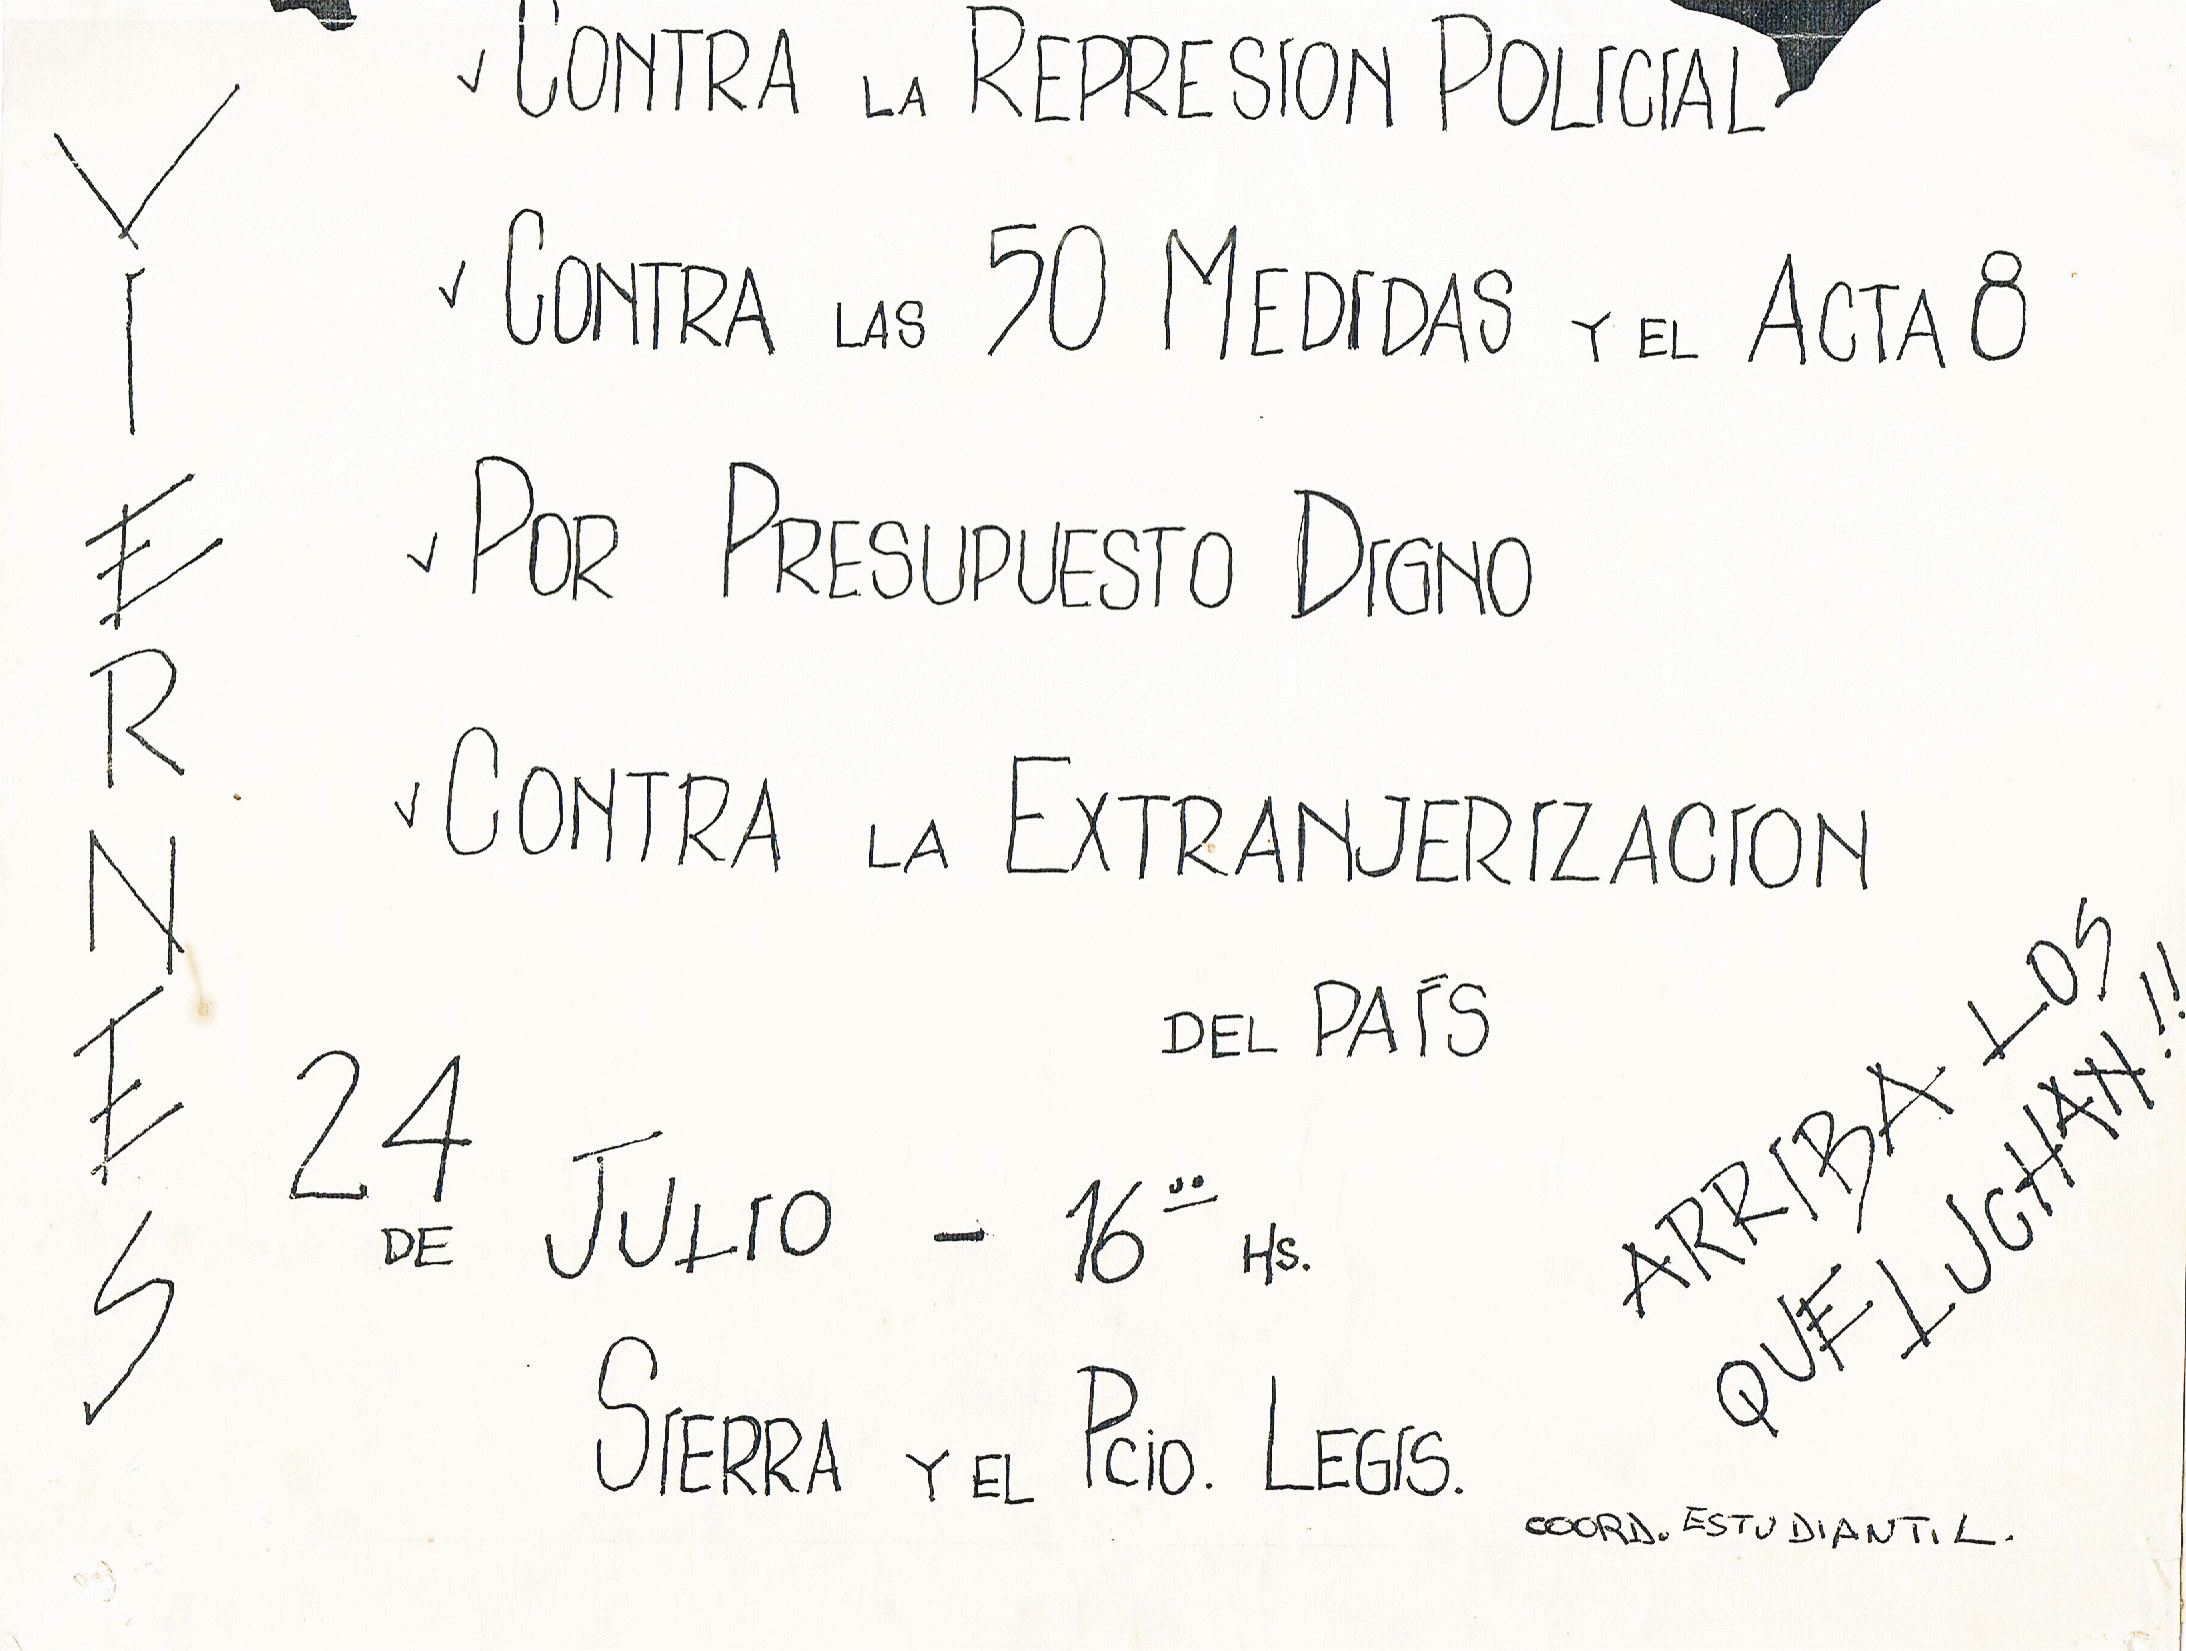 VIERNES
✓ CONTRA LA REPRESION POLICIAL
✓ CONTRA LAS 50 MEDIDAS Y EL ACTA 8
✓ POR PRESUPUESTO DIGNO
✓ CONTRA LA EXTRANJERIZACION
DEL PAÍS
24 DE JULIO - 16 00 HS.
SIERRA Y EL Pcio. LEGIS.
ARRIBA LOS
QUE LUCHAN!!
COORD. ESTUDIANTIL.